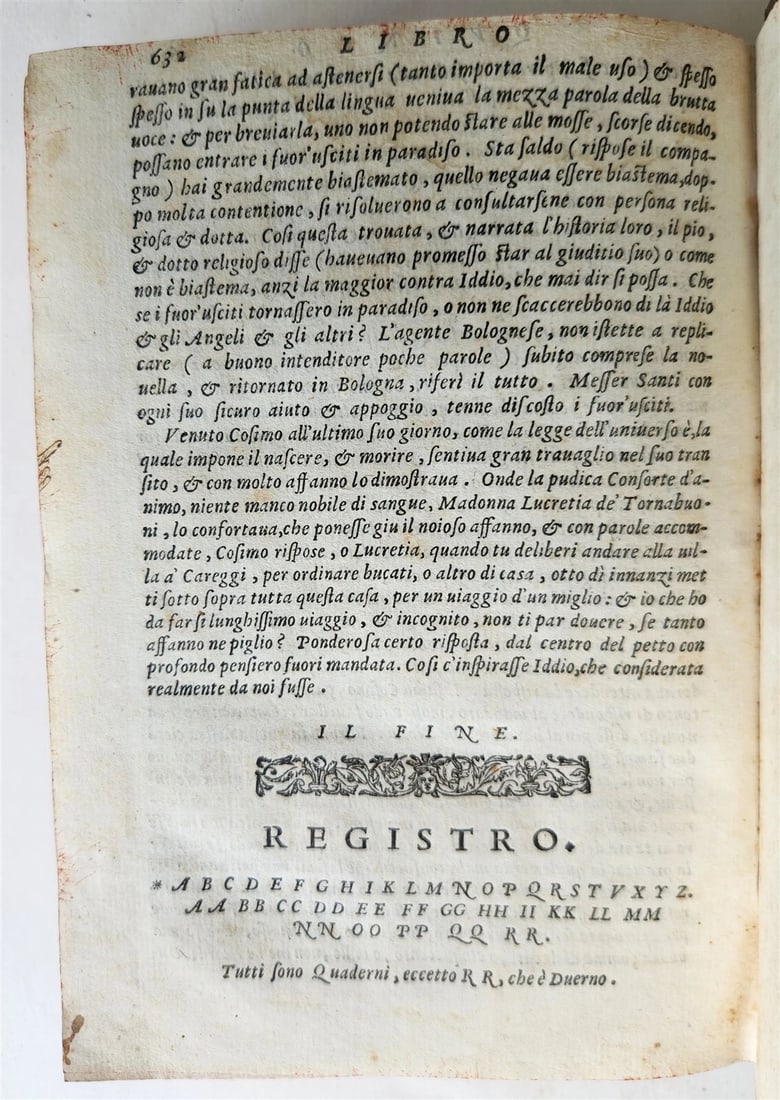 632
LIBRO
rauano gran fatica ad aſtenerſi (tanto importa il male uſo) & ſpeſſo
ſpeſſo in ſu la punta della lingua ueniua la mezza parola della brutta
uoce: & per breuiarla, uno non potendo ſtare alle moſſe, ſcorſe dicendo,
poſſano entrare i fuor'uſciti in paradiſo. Sta ſaldo (riſpoſe il compa-
gno) hai grandemente biaſtemato, quello negaua eſſere biaſtema, dop-
po molta contentione, ſi riſoluerono a conſultarſene con perſona reli-
gioſa & dotta. Coſi queſta trouata, & narrata l'hiſtoria loro, il pio,
& dotto religioſo diſſe (haueuano promeſſo ſtar al giuditio ſuo) o come
non è biaſtema, anzi la maggior contra Iddio, che mai dir ſi poſſa. Che
ſe i fuor'uſciti tornaſſero in paradiſo, o non ne ſcaccerebbono di là Iddio
& gli Angeli & gli altri? L'agente Bologneſe, non iſtette a repli-
care ( a buono intenditore poche parole ) ſubito compreſe la no-
uella, & ritornato in Bologna, riferì il tutto. Meſſer Santi con
ogni ſuo ſicuro aiuto & appoggio, tenne diſcoſto i fuor'uſciti.
Venuto Coſimo all'ultimo ſuo giorno, come la legge dell'uniuerſo è, la
quale impone il naſcere, & morire, ſentiua gran trauaglio nel ſuo tran
ſito, & con molto affanno lo dimoſtraua. Onde la pudica Conſorte d'a-
nimo, niente manco nobile di sangue, Madonna Lucretia de' Tornabuo-
ni, lo confortaua, che poneſſe giu il noioſo affanno, & con parole accom-
modate, Coſimo riſpoſe, o Lucretia, quando tu deliberi andare alla uil-
la a' Careggi, per ordinare bucati, o altro di caſa, otto dì innanzi met
ti ſotto ſopra tutta queſta caſa, per un uiaggio d'un miglio: & io che ho
da farſi lunghiſſimo uiaggio, & incognito, non ti par douere, ſe tanto
affanno ne piglio? Ponderoſa certo riſpoſta, dal centro del petto con
profondo penſiero fuori mandata. Coſi c'inſpiraſſe Iddio, che conſiderata
realmente da noi fuſſe.
IL FINE.
REGISTRO.
* A B C D E F G H I K L M N O P Q R S T V X Y Z.
AA BB CC DD EE FF GG HH II KK LL MM
NN OO PP QQ RR.
Tutti ſono Quaderni, eccetto RR, che è Duerno.